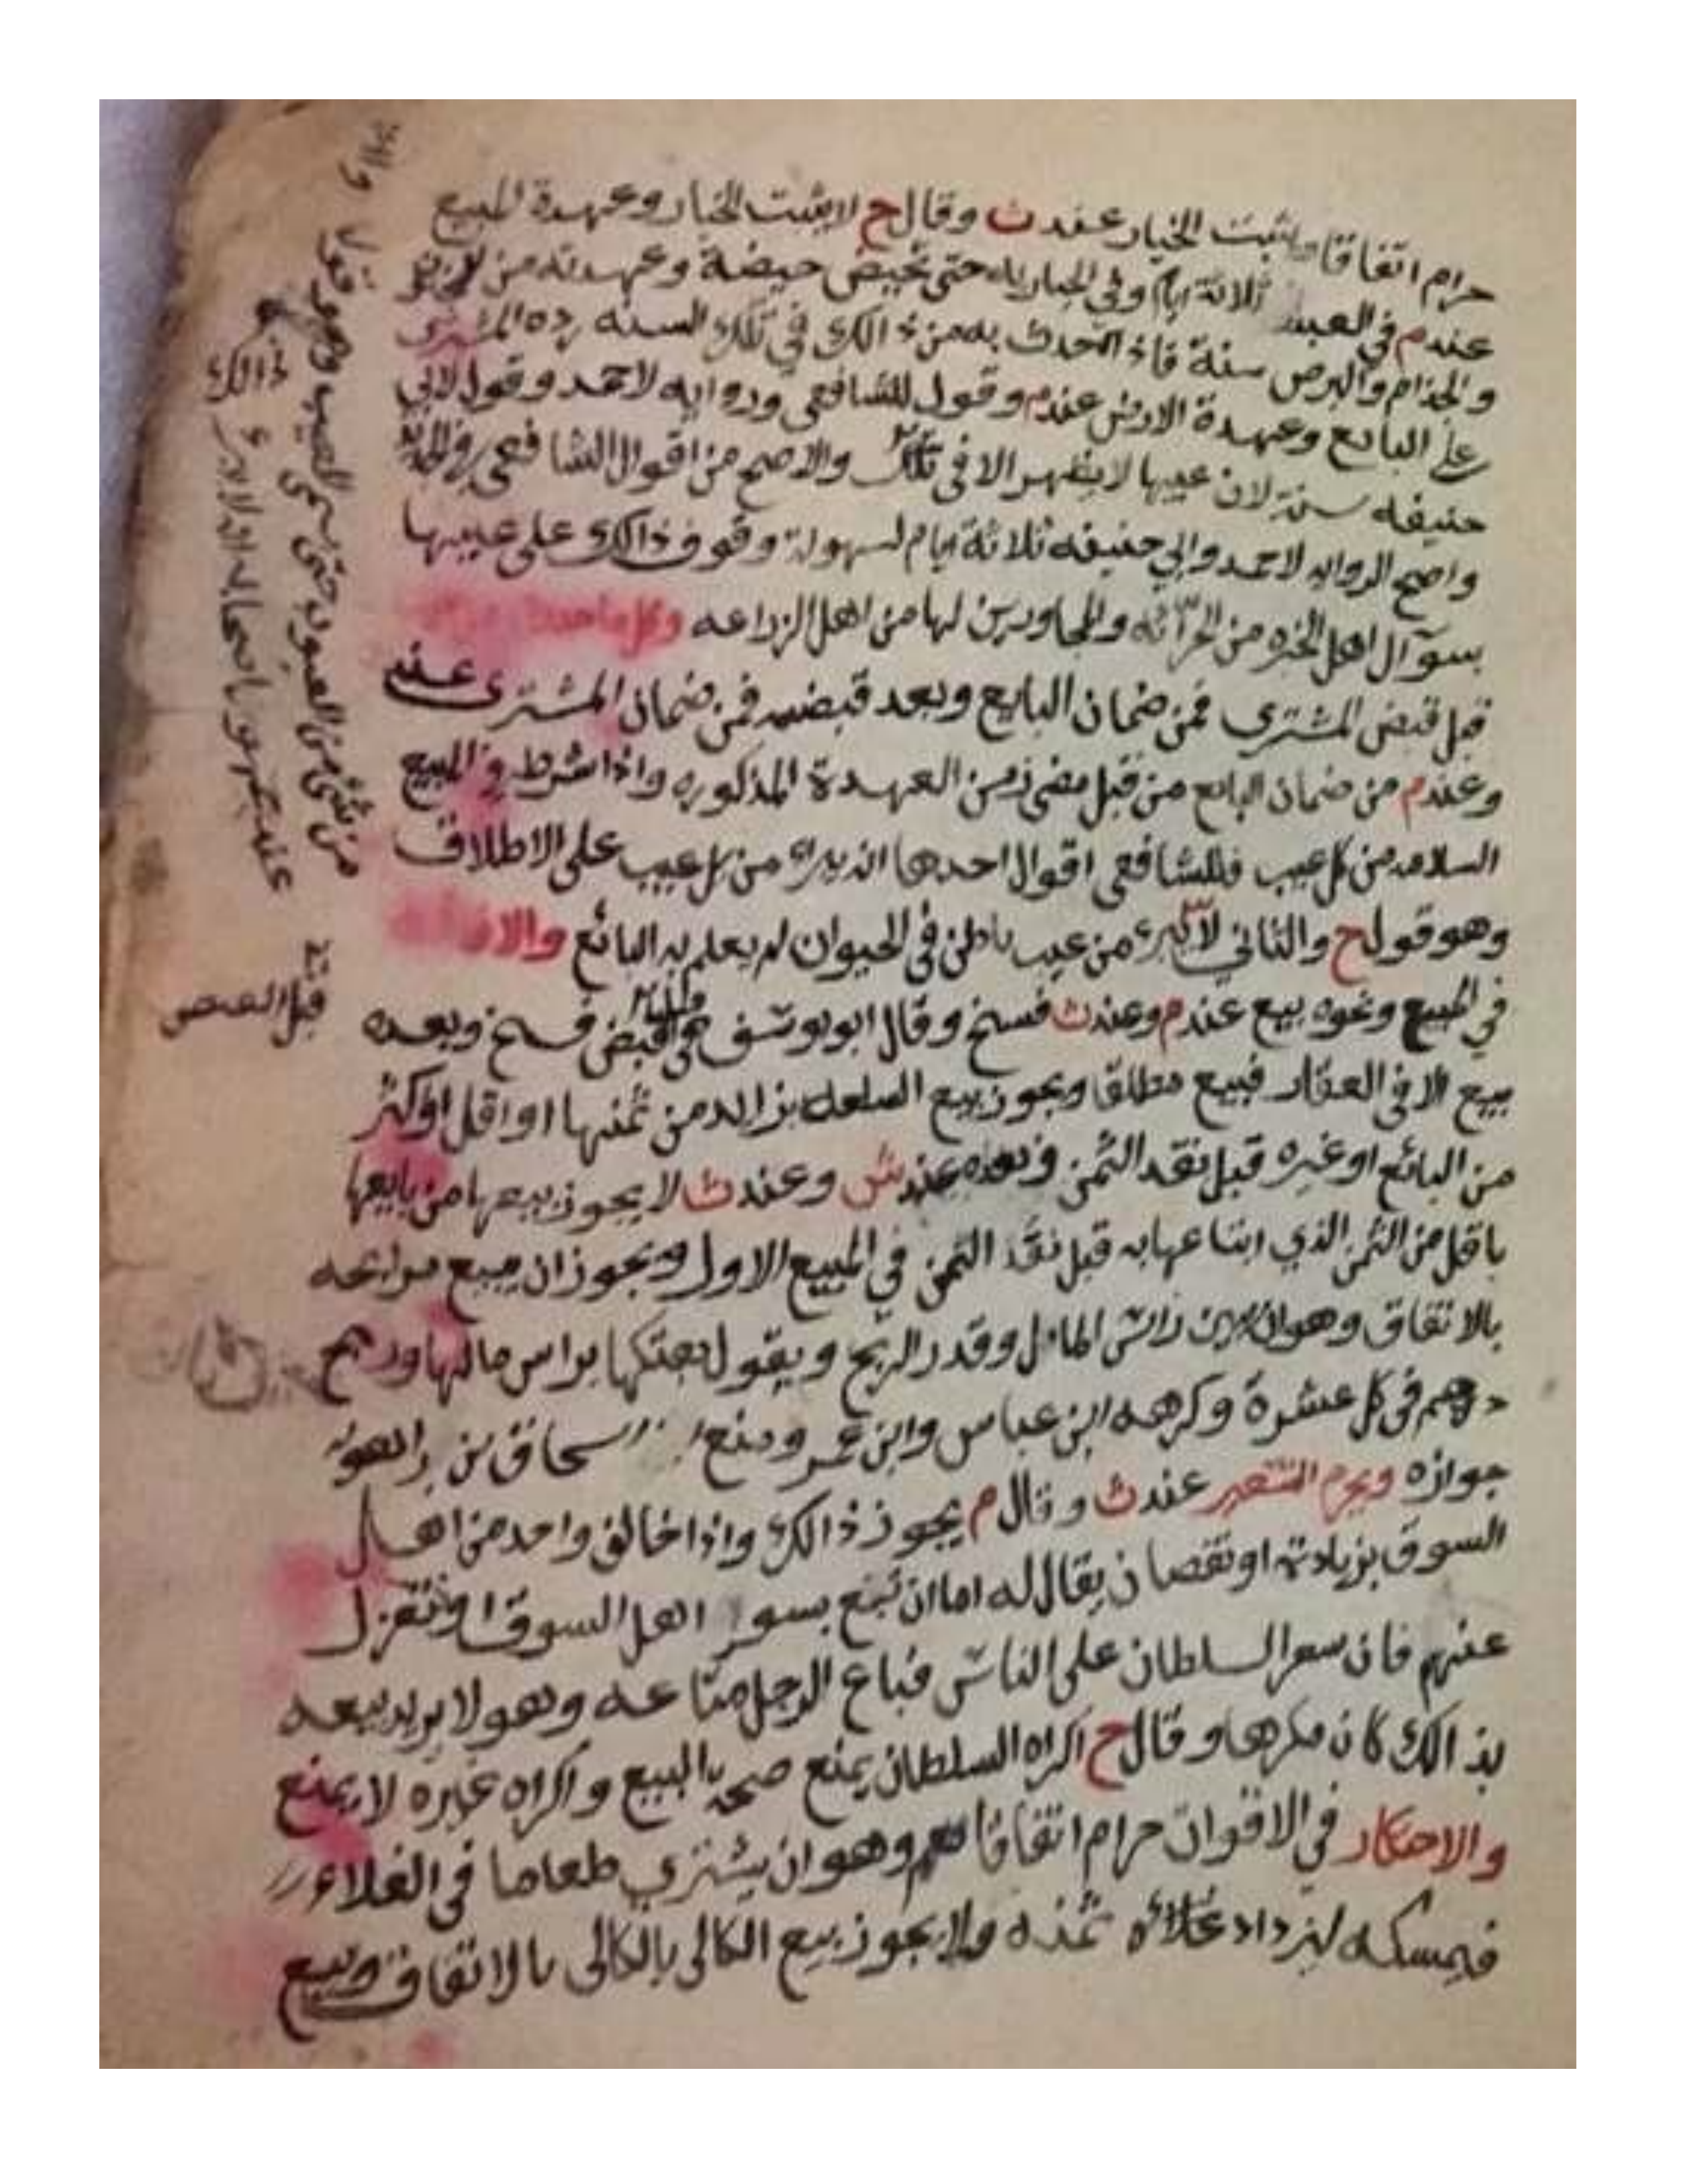 حرام اتفاقا ويثبت الخيار عند ث وقال ح لا يثبت الخيار وعهدة المبيع
عند م في العبد ثلاثة ايام وفي الجاريه حتى تحيض حيضة وعهدته من
والجذام والبرص سنة فاذا حدث به من ذالك في تلك السنه رده المشتري
على البايع وعهدة الارض عند م وقول للشافعي وروايه لاحمد وقول لابي
حنيفه سنة لان عيبها لا يظهر الا في تلك والاصح من اقوال الشافعي
واصح الروايه لاحمد وابي حنيفه ثلاثة ايام لسهولة وقوف ذالك على عيبها
بسوآل اهل الخبره من الحرّاثه والمجاورين لها من اهل الزراعه
قبل قبض المشتري فمن ضمان البايع وبعد قبضه فمن ضمان المشتري عند
وعند م من ضمان البايع من قبل مضي زمن العهدة المذكوره واذا شرط في المبيع
السلامه من كل عيب فللشافعي اقوال احدها انه يبراء من كل عيب على الاطلاق
وهو قول ح والثاني لا يبرء من عيب باطن في الحيوان لم يعلم به البائع
في المبيع ونحوه بيع عند م وعند ث فسخ وقال ابو يوسف القبض فسخ وبعده
بيع الا في العقار فبيع مطلقا ويجوز بيع السلعه بزايد من ثمنها او اقل او اكثر
من البائع او غيره قبل نقد الثمن وبعده عند ش وعند ث لا يجوز بيعها من بايعها
باقل من الثمن الذي ابتاعها به قبل نقد الثمن في المبيع الاول ويجوز ان يبيع مرابحه
بالاتفاق وهو ان يبين راس المال وقدر الربح ويقول بعتكها براس مالها وربح
درهم في كل عشرة وكرهه ابن عباس وابن عمر ومنع اسحاق بن راهويه
جوازه ويحرم التسعير عند ث وقال م يجوز ذالك واذا خالف واحد من اهل
السوق بزيادة او نقصان يقال له اما ان تبع بسعر اهل السوق او تنعزل
عنهم فان سعر السلطان على الناس فباع الرجل متاعه وهو لا يريد بيعه
بذالك كان مكرها وقال ح اكراه السلطان يمنع صحة البيع واكراه غيره لا يمنع
والاحتكار في الاقوات حرام اتفاقا وهو ان يشتري طعاما في الغلاء
فيمسكه ليزداد غلائه ثمنه ولا يجوز بيع الكالي بالكالي بالاتفاق وبيع
من شيء من العيوب حتى يسمى العيب وهو قول
قبل القبض